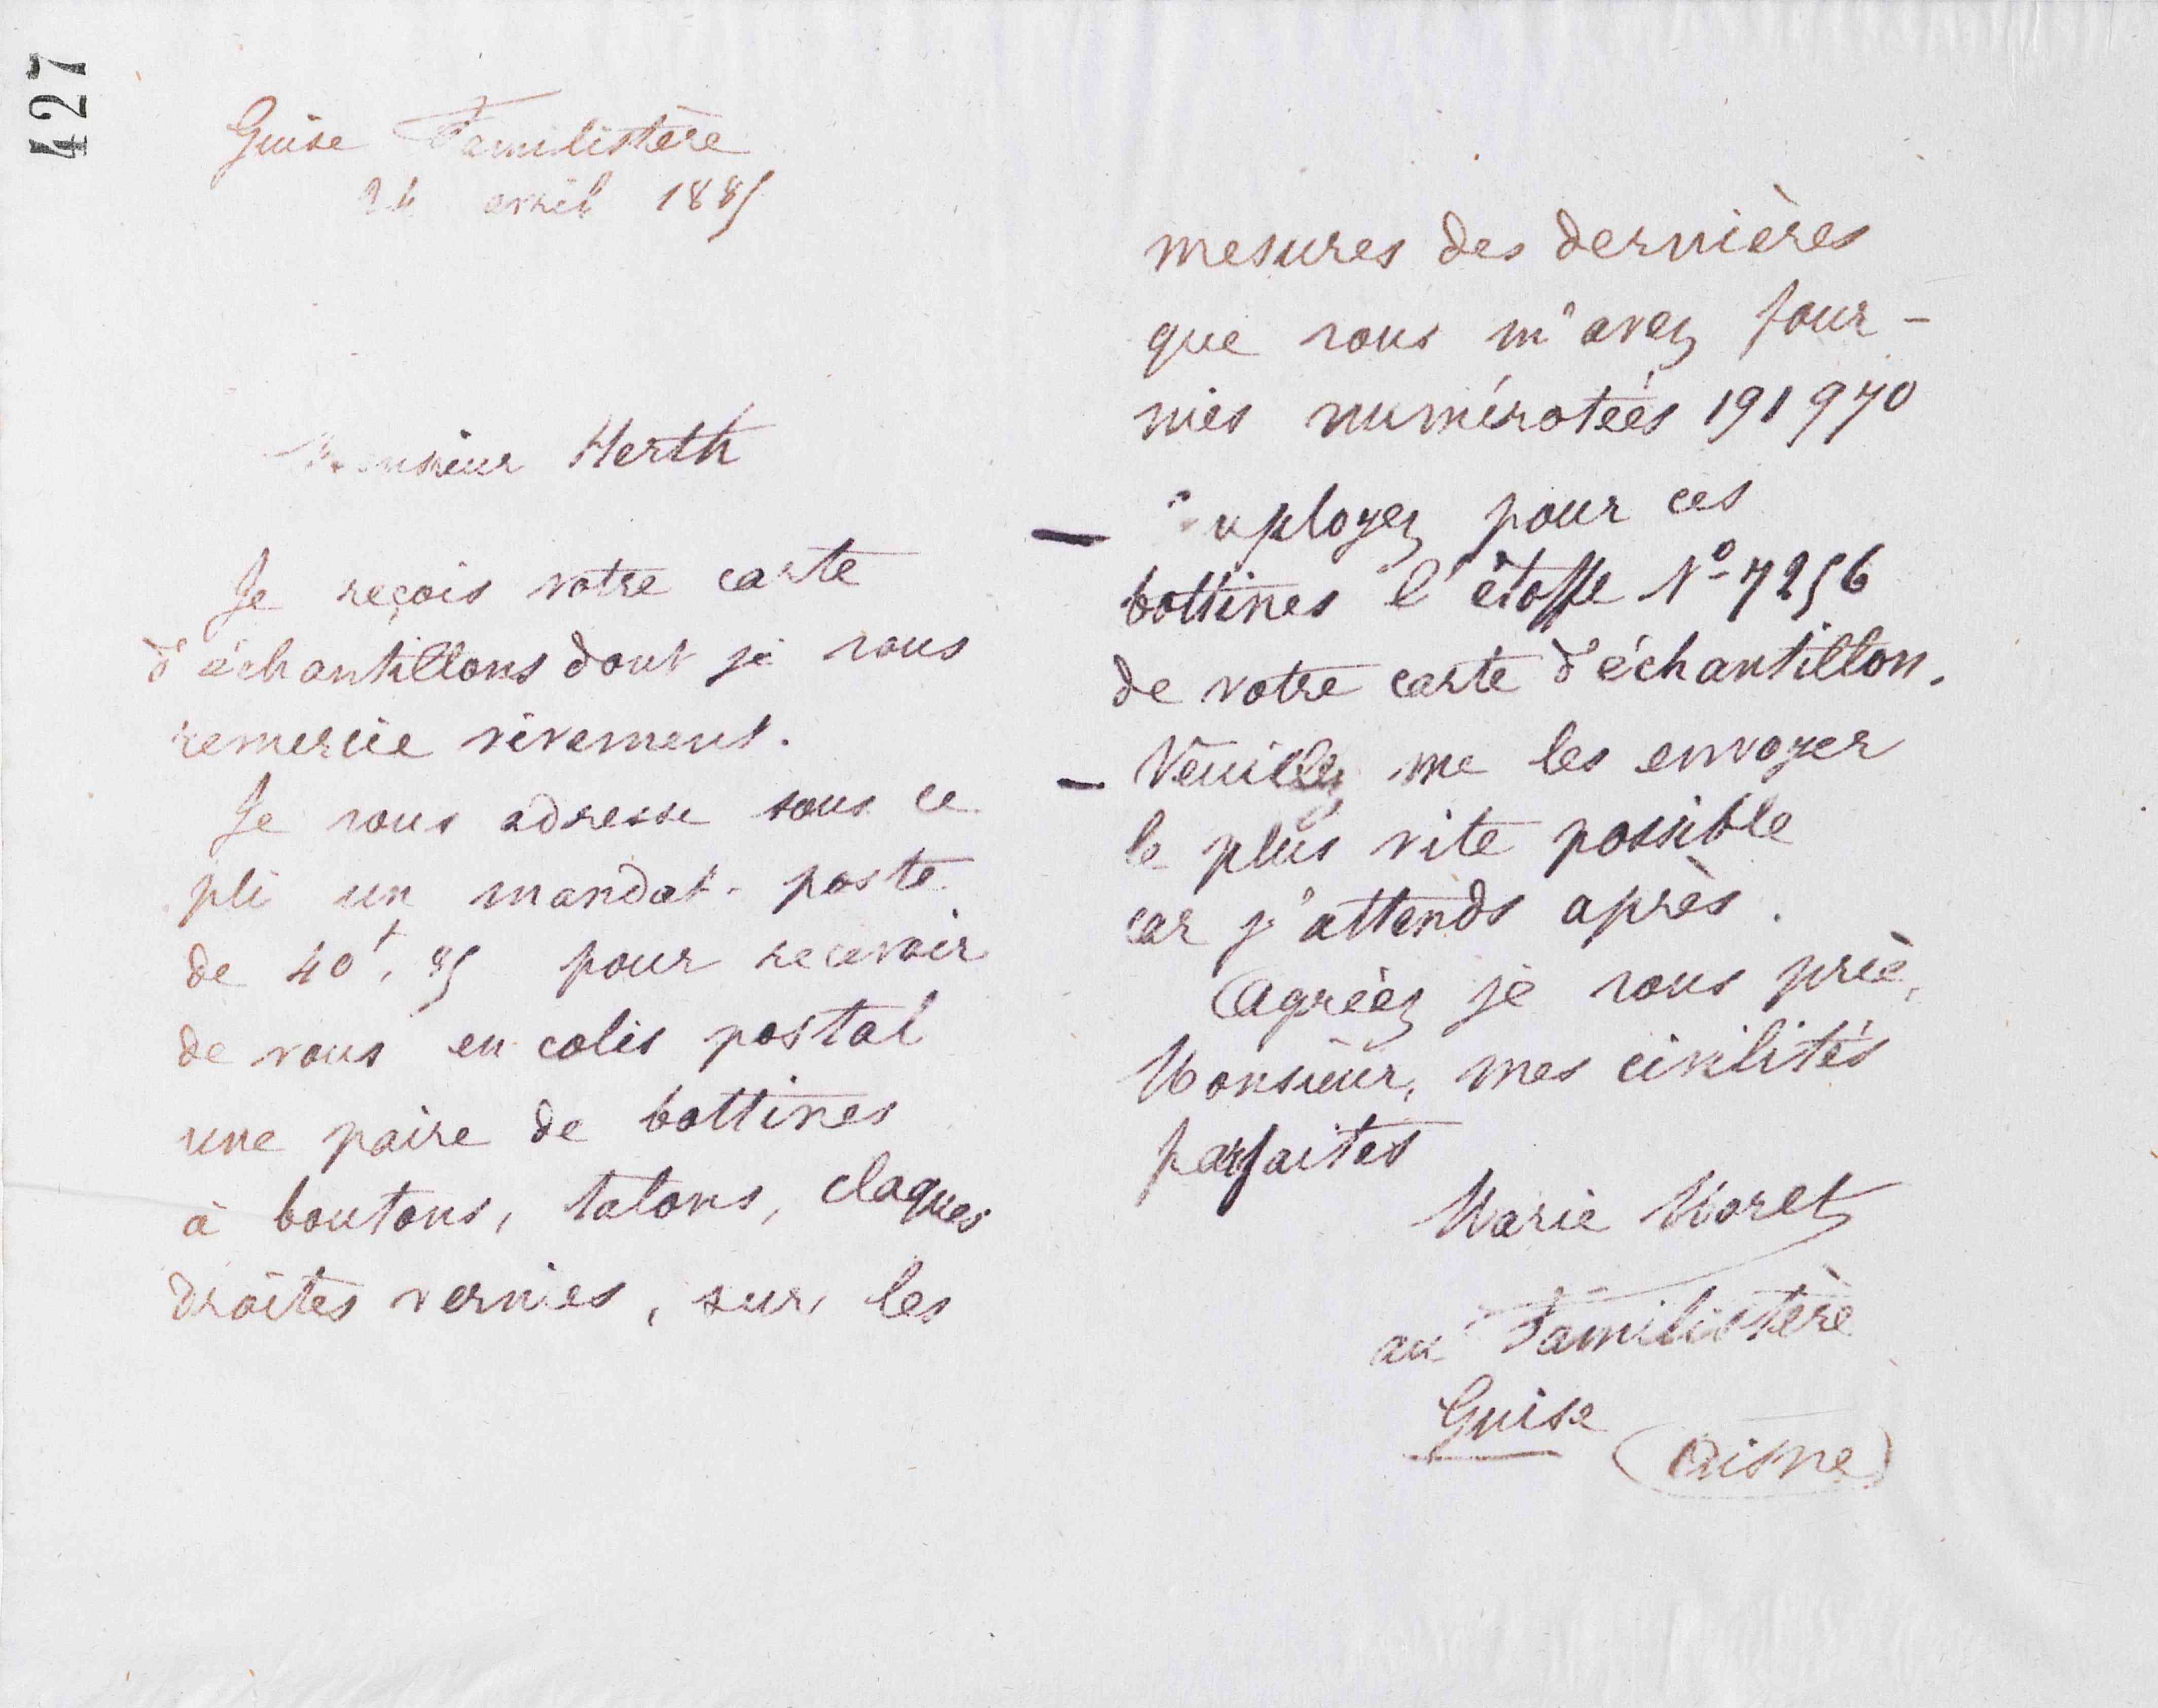 427
Guise Familistère
24 avril 1885
Monsieur Herth
Je reçois votre carte
d'échantillons dont je vous
remercie vivement.
Je vous adresse sous ce
pli un mandat-poste
de 40f,85 pour recevoir
de vous en colis postal
une paire de bottines
à boutons, talons, claques
droites vernies, sur les
mesures des dernières
que vous m'avez four-
nies numérotées 191970
— Employez pour ces
bottines l'étoffe No 7256
de votre carte d'échantillon.
— Veuillez me les envoyer
le plus vite possible
car j'attends après.
Agréez je vous prie,
Monsieur, mes civilités
parfaites
Marie Moret
au Familistère
Guise
(Aisne)